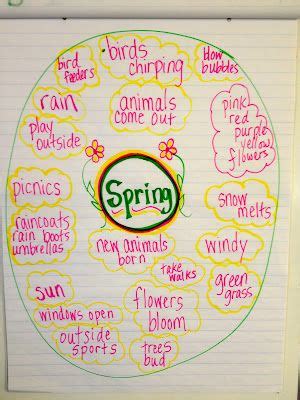 bird
feeders
birds
chirping
blow
bubbles
rain
animals
come out
pink
red
purple
yellow
flowers
play
outside
picnics
Spring
snow
melts
raincoats
rain boots
umbrellas
new animals
born
windy
take
walks
green
grass
sun
flowers
bloom
windows open
outside
sports
trees
bud